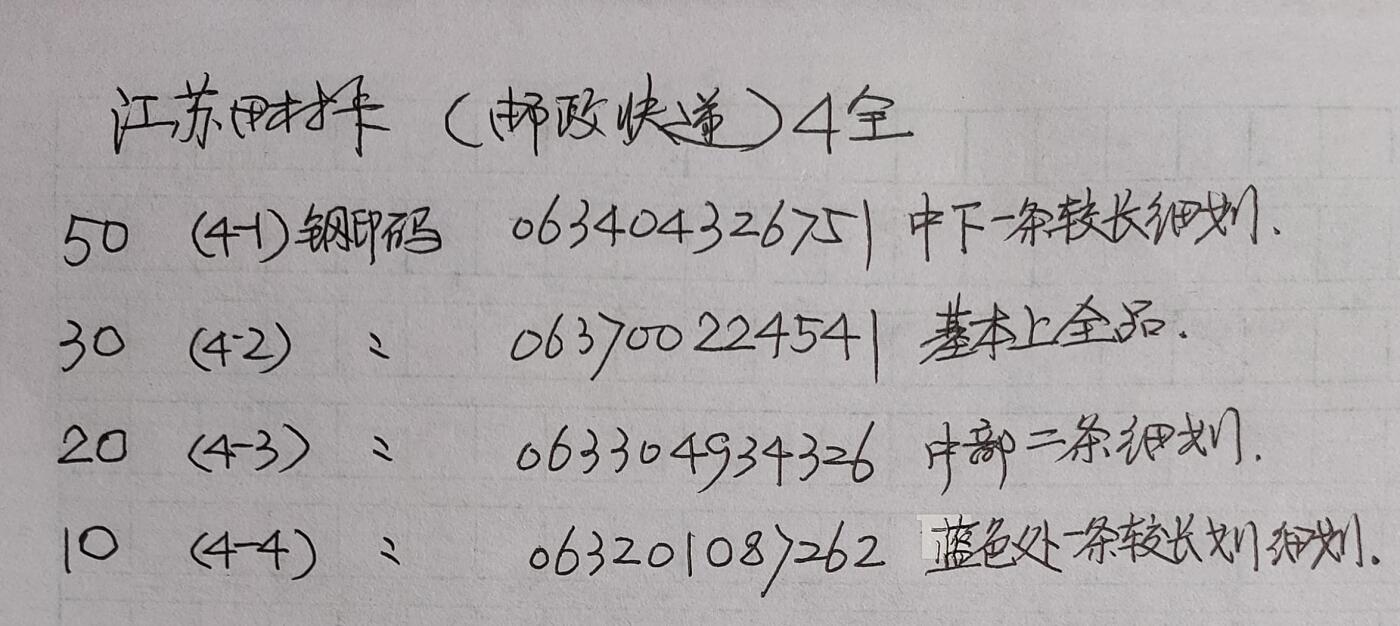 江苏田村卡（邮政快递）4全
50 (4-1)钢印码 063404326751 中下一条较长细划.
30 (4-2) 〃 063700224541 基本上全品.
20 (4-3) 〃 063304934326 中部二条细划.
10 (4-4) 〃 063201087262 蓝色处一条较长划细划.